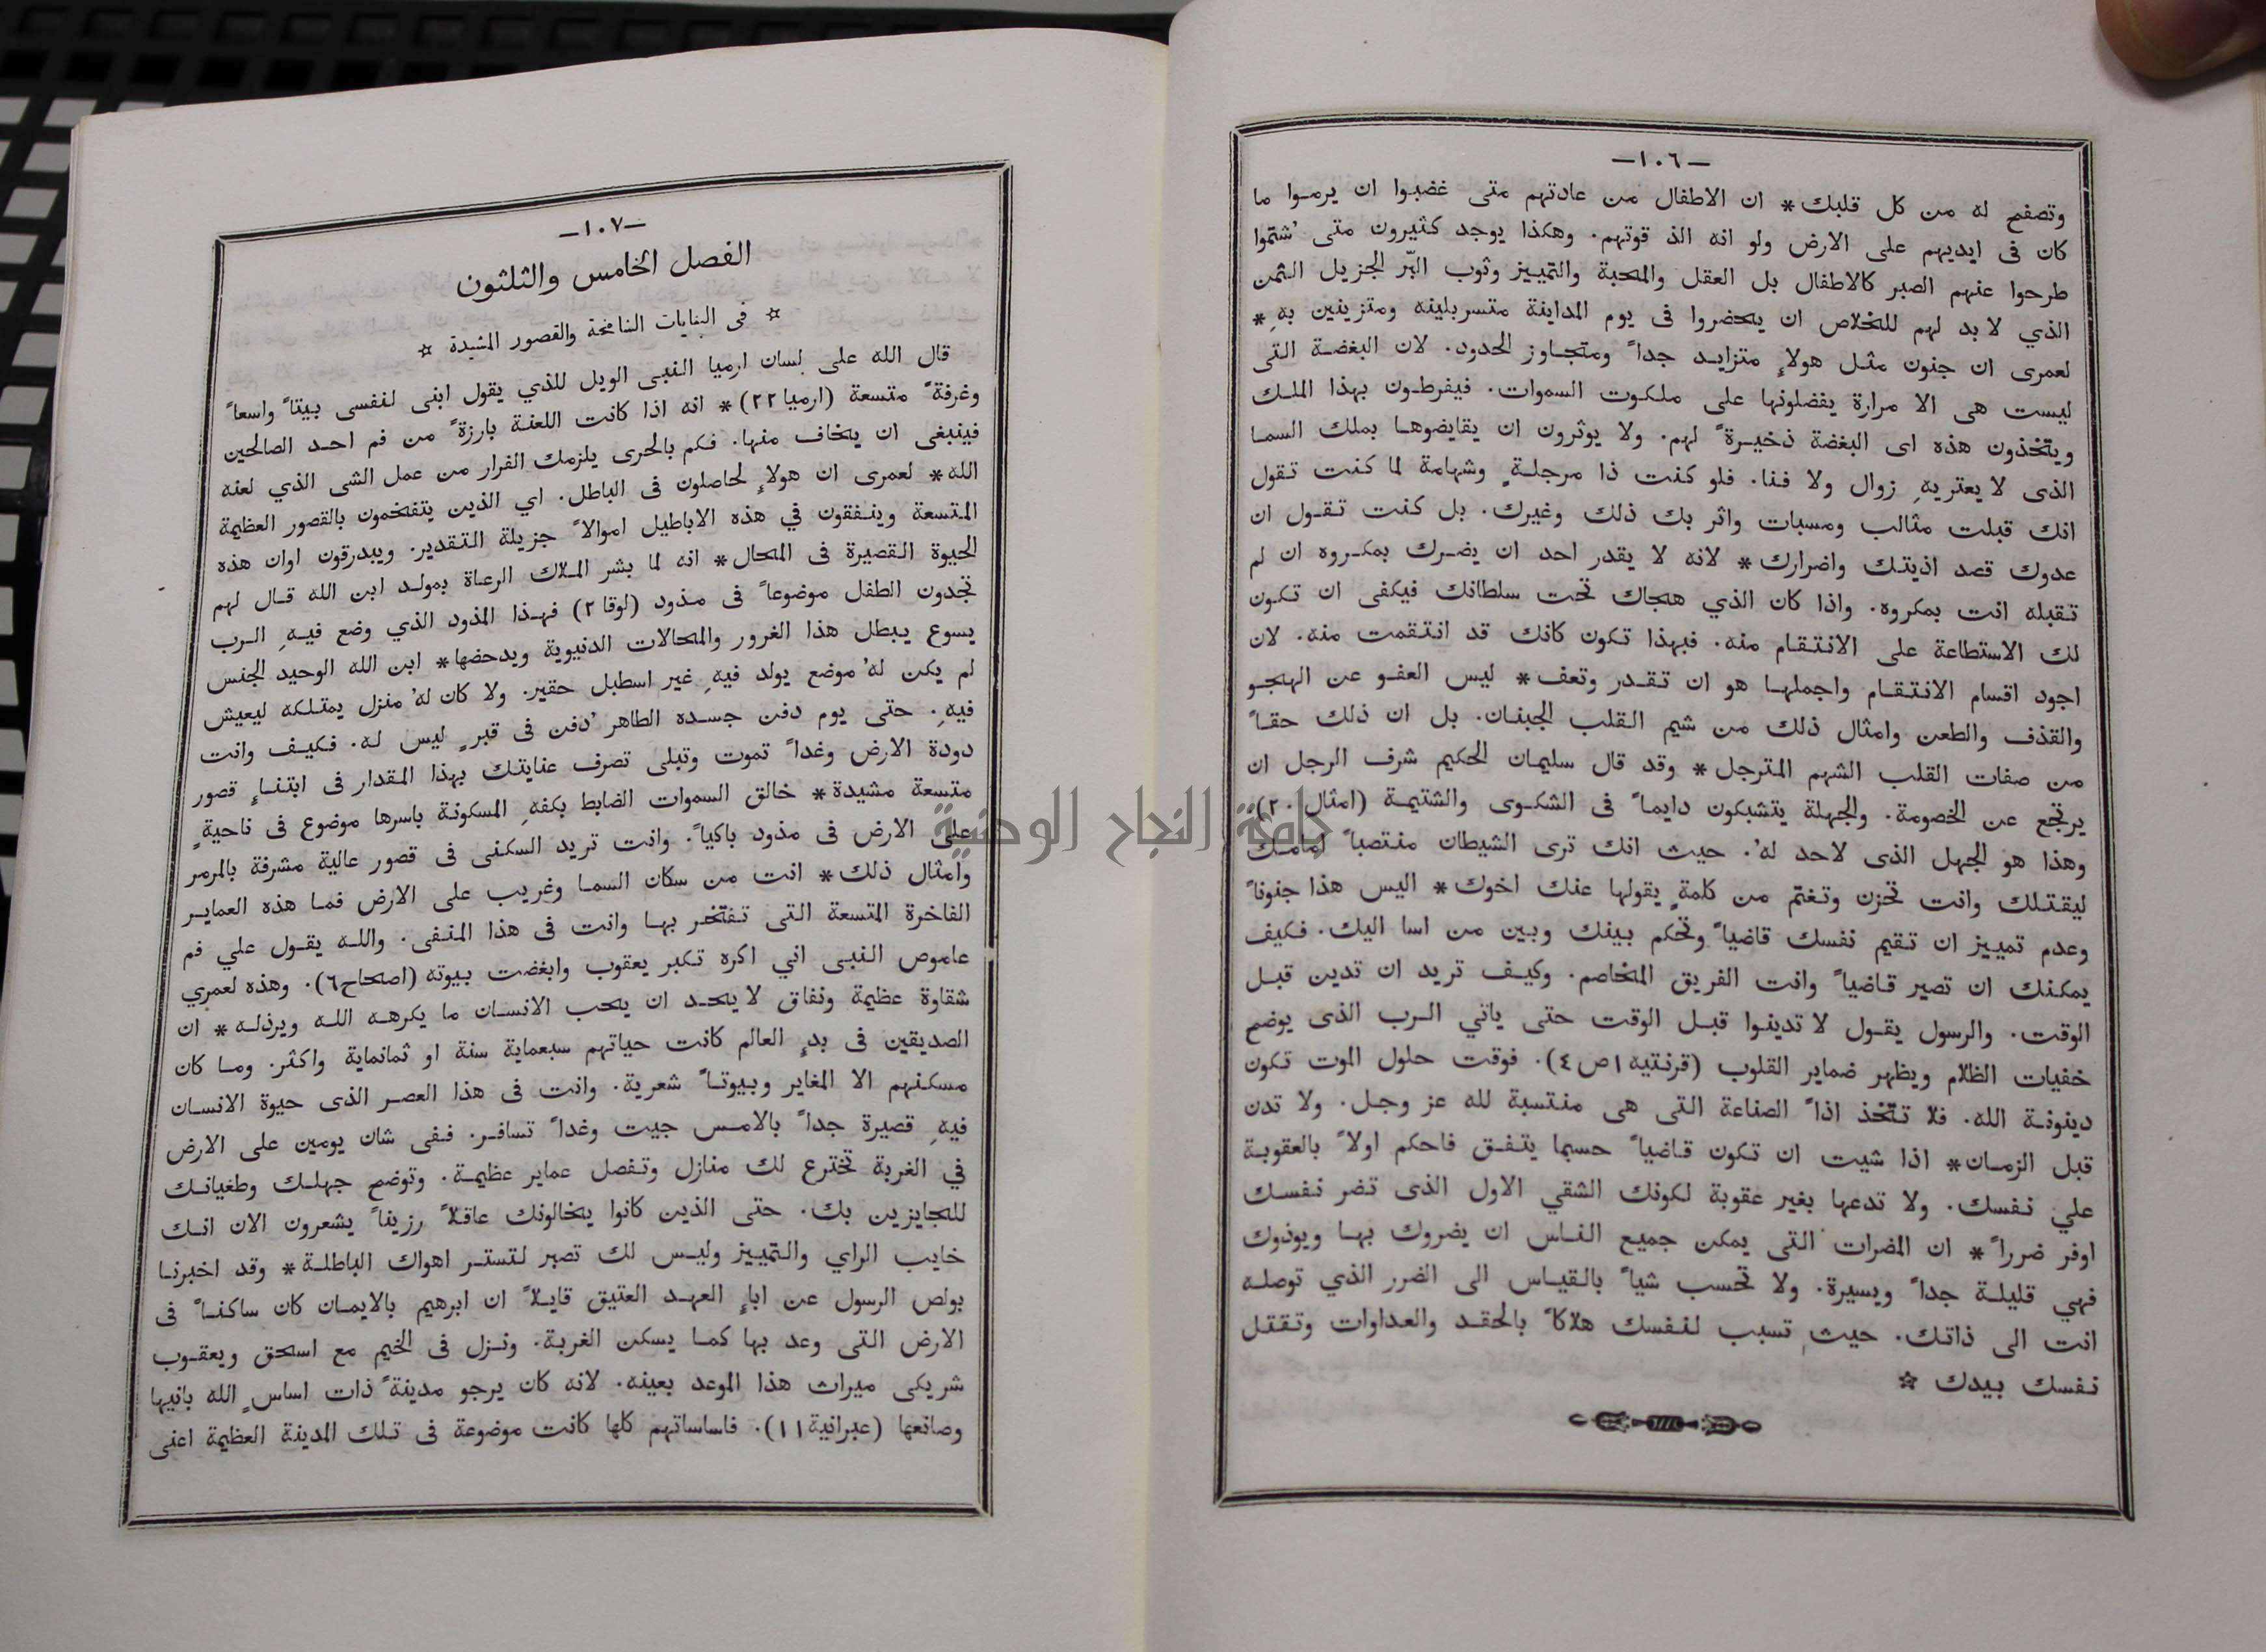 —١٠٦—
وتصفح له من كل قلبك* ان الاطفال من عادتهم متى غضبوا ان يرموا ما
كان فى ايديهم على الارض ولو انه الذ قوتهم. وهكذا يوجد كثيرون متى ُشتموا
طرحوا عنهم الصبر كالاطفال بل العقل والمحبة والتمييز وثوب البّر الجزيل الثمن
الذي لا بد لهم للخلاص ان يحضروا فى يوم المداينة متسربلينه ومتزينين بهِ*
لعمرى ان جنون مثل هولاءِ متزايد جداً ومتجاوز الحدود. لان البغضة التى
ليست هى الا مرارة يفضلونها على ملكوت السموات. فيفرطون بهذا الملك
ويتخذون هذه اى البغضة ذخيرةً لهم. ولا يوثرون ان يقايضوها بملك السما
الذى لا يعتريهِ زوال ولا فنا. فلو كنت ذا مرجلةٍ وشهامة لما كنت تقول
انك قبلت مثالب ومسبات واثر بك ذلك وغيرك. بل كنت تقول ان
عدوك قصد اذيتك واضرارك* لانه لا يقدر احد ان يضرك بمكروه ان لم
تقبله انت بمكروه. واذا كان الذي هجاك تحت سلطانك فيكفى ان تكون
لك الاستطاعة على الانتقام منه. فبهذا تكون كانك قد انتقمت منه. لان
اجود اقسام الانتقام واجملها هو ان تقدر وتعف* ليس العفو عن الهجو
والقذف والطعن وامثال ذلك من شيم القلب الجبنان. بل ان ذلك حقاً
من صفات القلب الشهم المترجل* وقد قال سليمان الحكيم شرف الرجل ان
يرتجع عن الخصومة. والجهلة يتشبكون دايماً فى الشكوى والشتيمة (امثال ٢٠)
وهذا هو الجهل الذى لاحد لهُ. حيث انك ترى الشيطان منتصباً امامك
ليقتلك وانت تحزن وتغتم من كلمةٍ يقولها عنك اخوك* اليس هذا جنوناً
وعدم تمييز ان تقيم نفسك قاضياً وتحكم بينك وبين من اسا اليك. فكيف
يمكنك ان تصير قاضياً وانت الفريق المخاصم. وكيف تريد ان تدين قبل
الوقت. والرسول يقول لا تدينوا قبل الوقت حتى ياتي الرب الذى يوضح
خفيات الظلام ويظهر ضماير القلوب (قرنتيه ١ ص ٤). فوقت حلول الموت تكون
دينونة الله. فلا تتخذ اذاً الصناعة التى هى منتسبة لله عز وجل. ولا تدن
قبل الزمان* اذا شيت ان تكون قاضياً حسبما يتفق فاحكم اولاً بالعقوبة
علي نفسك. ولا تدعها بغير عقوبة لكونك الشقي الاول الذى تضر نفسك
اوفر ضرراً* ان المضرات التى يمكن جميع الناس ان يضروك بها ويوذوك
فهي قليلة جداً ويسيرة. ولا تحسب شياً بالقياس الى الضرر الذي توصله
انت الى ذاتك. حيث تسبب لنفسك هلاكاً بالحقد والعداوات وتقتل
نفسك بيدك ☆
—١٠٧—
الفصل الخامس والثلثون
☆ فى البنايات الشامخة والقصور المشيدة ☆
قال الله على لسان ارميا النبى الويل للذي يقول ابنى لنفسى بيتاً واسعاً
وغرفةً متسعة (ارميا ٢٢)* انه اذا كانت اللعنة بارزةً من فم احد الصالحين
فينبغى ان يخاف منها. فكم بالحرى يلزمك الفرار من عمل الشى الذي لعنه
الله* لعمرى ان هولاءِ لحاصلون فى الباطل. اي الذين يتفخمون بالقصور العظيمة
المتسعة وينفقون في هذه الاباطيل اموالاً جزيلة التقدير. ويبدرقون اوان هذه
الحيوة القصيرة فى المحال* انه لما بشر الملاك الرعاة بمولد ابن الله قال لهم
تجدون الطفل موضوعاً فى مذود (لوقا ٢) فهذا المذود الذي وضع فيهِ الرب
يسوع يبطل هذا الغرور والمحالات الدنيوية ويدحضها* ابن الله الوحيد الجنس
لم يكن لهُ موضع يولد فيهِ غير اسطبل حقير. ولا كان لهُ منزل يمتلكه ليعيش
فيهِ. حتى يوم دفن جسده الطاهر ُدفن فى قبرٍ ليس له. فكيف وانت
دودة الارض وغداً تموت وتبلى تصرف عنايتك بهذا المقدار فى ابتناءِ قصور
متسعة مشيدة* خالق السموات الضابط بكفهِ المسكونة باسرها موضوع فى ناحيةٍ
على الارض فى مذود باكياً. وانت تريد السكنى فى قصور عالية مشرفة بالمرمر
وامثال ذلك* انت من سكان السما وغريب على الارض فما هذه العماير
الفاخرة المتسعة التى تفتخر بها وانت فى هذا المنفى. والله يقول علي فم
عاموص النبى اني اكره تكبر يعقوب وابغضت بيوته (اصحاح ٦). وهذه لعمري
شقاوة عظيمة ونفاق لا يحد ان يحب الانسان ما يكرهه الله ويرذله* ان
الصديقين فى بدءِ العالم كانت حياتهم سبعماية سنة او ثمانماية واكثر. وما كان
مسكنهم الا المغاير وبيوتاً شعرية. وانت فى هذا العصر الذى حيوة الانسان
فيهِ قصيرة جداً بالامس جيت وغداً تسافر. ففى شان يومين على الارض
في الغربة تخترع لك منازل وتفصل عماير عظيمة. وتوضح جهلك وطغيانك
للجايزين بك. حتى الذين كانوا يخالونك عاقلاً رزيناً يشعرون الان انك
خايب الراي والتمييز وليس لك تصبر لتستر اهواك الباطلة* وقد اخبرنا
بولص الرسول عن اباءِ العهد العتيق قايلاً ان ابرهيم بالايمان كان ساكناً فى
الارض التى وعد بها كما يسكن الغربة. ونزل فى الخيم مع اسحق ويعقوب
شريكى ميراث هذا الموعد بعينه. لانه كان يرجو مدينةً ذات اساسٍ الله بانيها
وصانعها (عبرانية ١١). فاساساتهم كلها كانت موضوعة فى تلك المدينة العظيمة اعنى
جامعة النجاح الوطنية